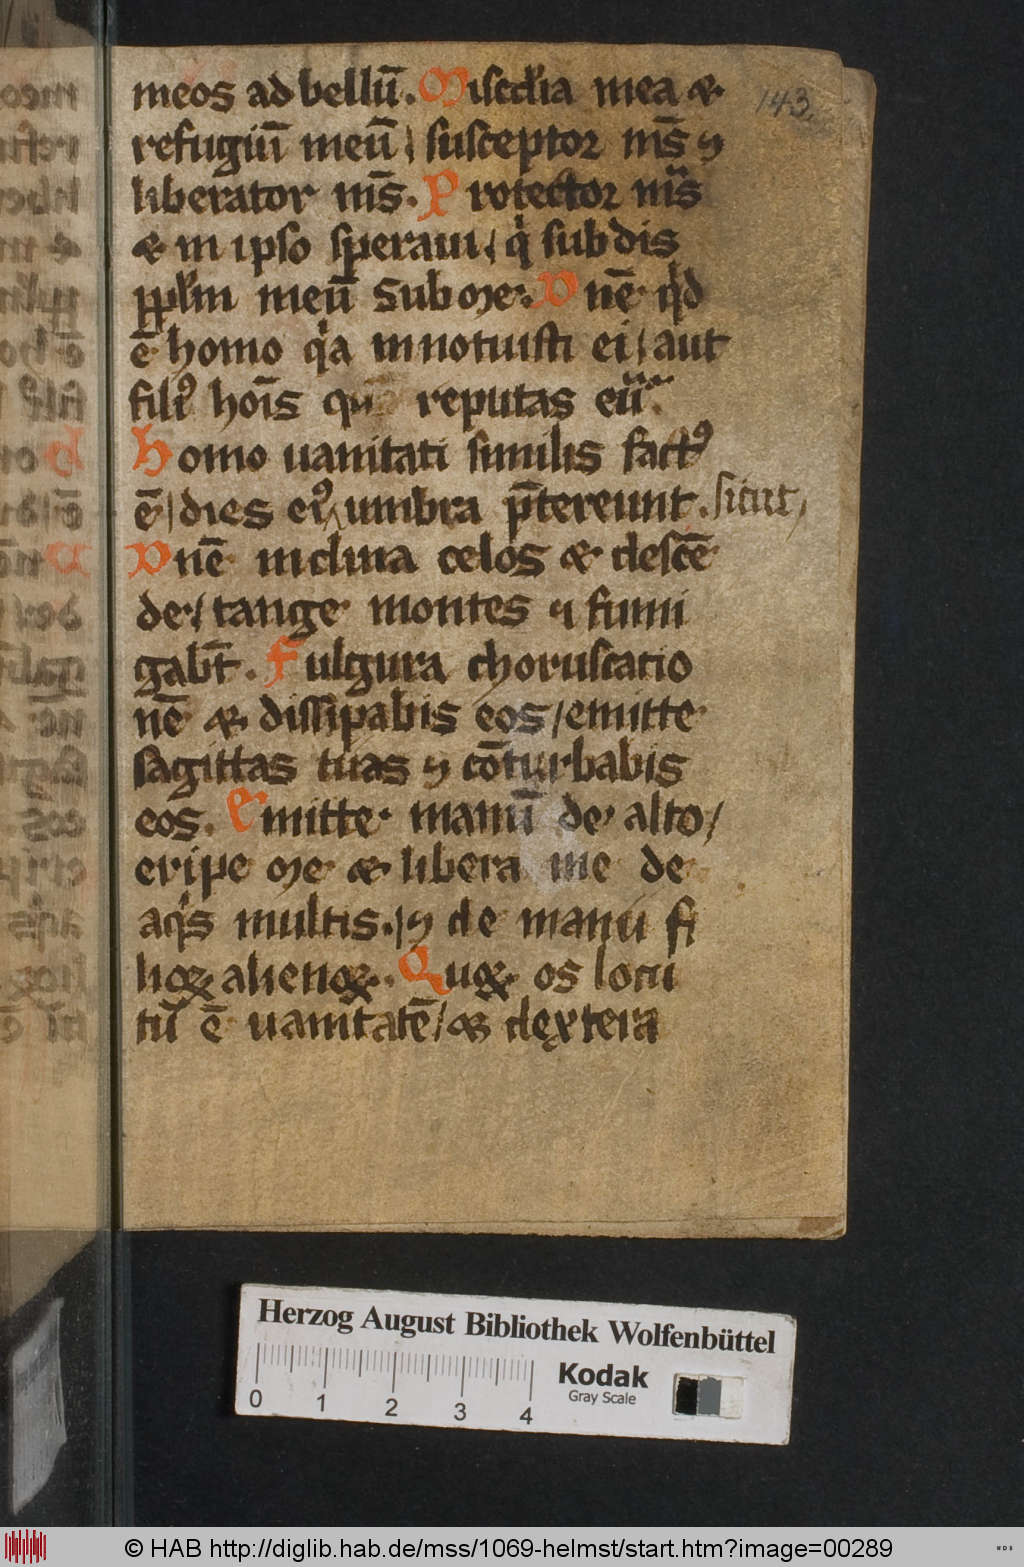 meos ad bellū. Misc̄dia mea ⁊
refugiū meū / susceptor ms̄ ⁊
liberator ms̄. Protector ms̄
⁊ in ipso speraui / qͥ subdis
pplm meū sub me. Dn̄e qͥd
ē homo qͥa innotuisti ei / aut
filiꝰ hoīs reputas eū
Homo uanitati similis factꝰ
ē / dies eiꝰ umbra p̄tereunt. sicut
Dn̄e inclina celos ⁊ descē
de / tange montes ⁊ fumi
gabt̄. Fulgura choruscatio
nē ⁊ dissipabis eos / emitte
sagittas tuas ⁊ cōturbabis
eos. Emitte manū de alto /
eripe me ⁊ libera me de
aqͥs multis. / ⁊ de manu fi
lioꝝ alienoꝝ. Quoꝝ os locu
tū ē uanitatē / ⁊ dextera
143.
Herzog August Bibliothek Wolfenbüttel
Kodak
Gray Scale
0 1 2 3 4
© HAB http://diglib.hab.de/mss/1069-helmst/start.htm?image=00289